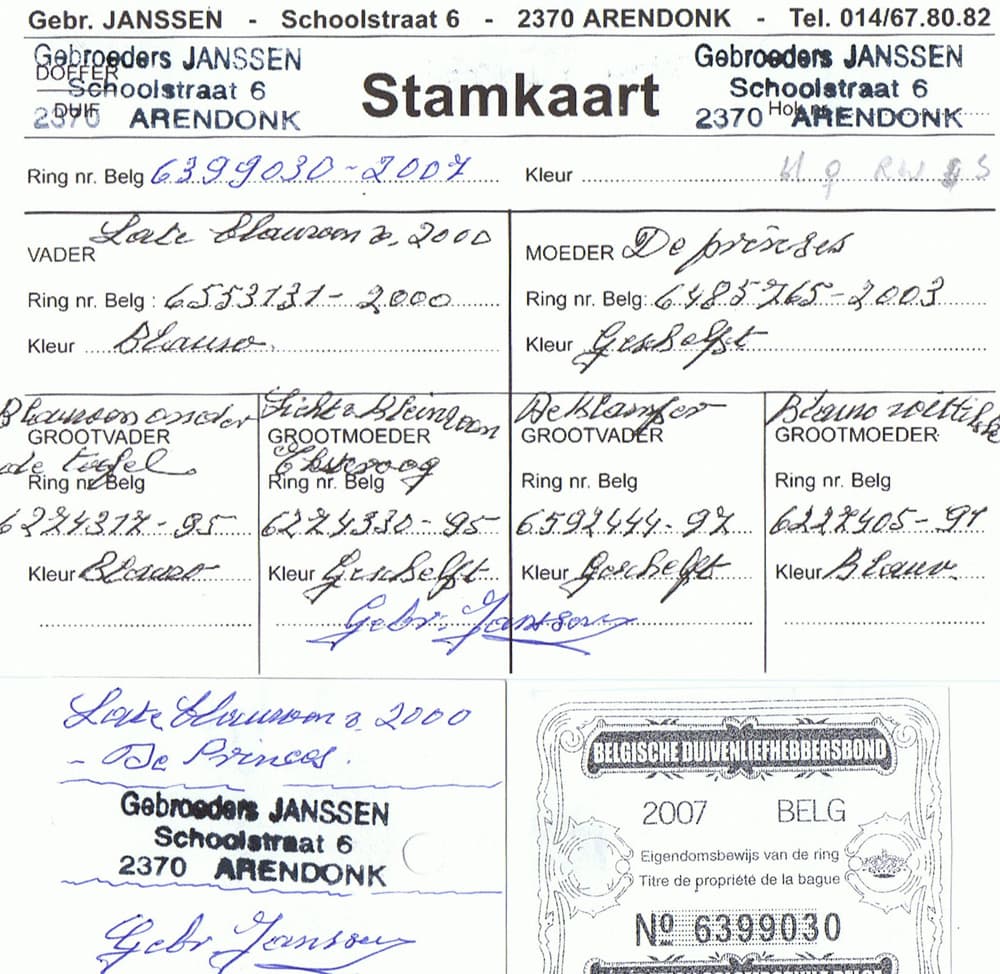 Gebr. JANSSEN - Schoolstraat 6 - 2370 ARENDONK - Tel. 014/67.80.82
Gebroeders JANSSEN
DOFFER
Schoolstraat 6
DUIF
2370 ARENDONK
Stamkaart
Gebroeders JANSSEN
Schoolstraat 6
Hok nr.
2370 ARENDONK
Ring nr. Belg 6399030-2007
Kleur
Late blauwen 2000
VADER
Ring nr. Belg : 6553131-2000
Kleur Blauw
De prinses
MOEDER
Ring nr. Belg: 6485765-2003
Kleur Geschelpt
Blauwen onder
GROOTVADER
de tafel
Ring nr. Belg
6274317-95
Kleur Blauw
GROOTMOEDER
Ring nr. Belg
6274330-95
Kleur Geschelpt
GROOTVADER
Ring nr. Belg
6592444-97
Kleur Geschelpt
GROOTMOEDER
Ring nr. Belg
Kleur Blauw
Gebr. Janssen
Late blauwen 2000
- De Princes.
Gebroeders JANSSEN
Schoolstraat 6
2370 ARENDONK
Gebr Janssen
BELGISCHE DUIVENLIEFHEBBERSBOND
2007 BELG
Eigendomsbewijs van de ring
Titre de propriété de la bague
Nº 6399030